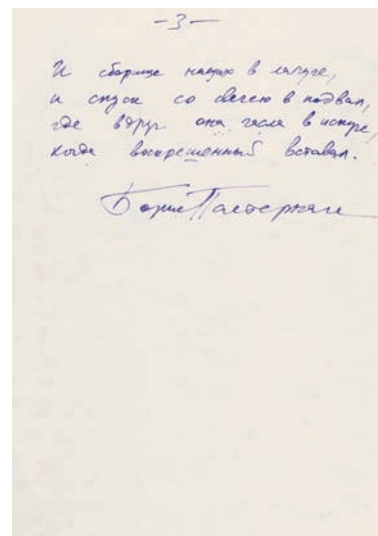 -3-
И сборище нищих в лачуге,
и спуск со свечею в подвал,
где вдруг она гасла в испуге,
когда воскрешенный вставал.
Борис Пастернак